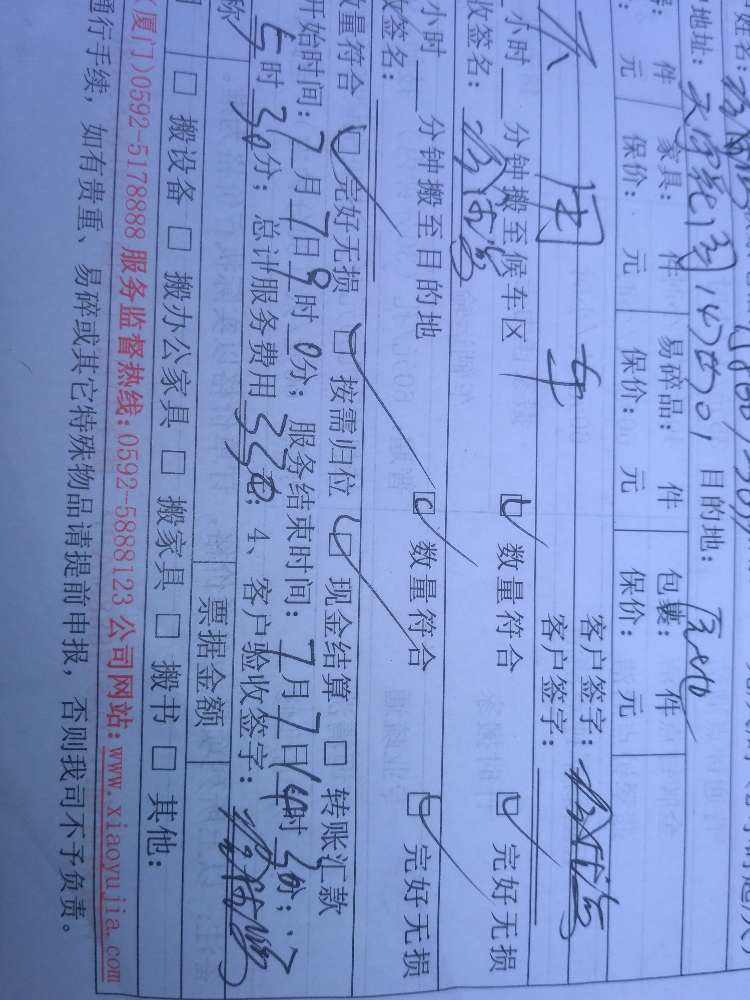 姓名:
地址: 天宇花园 目的地: 原地
件 家具: 件 易碎品: 件 包裹: 件
元 保价: 元 保价: 元 保价: 元
客户签字:
不用车 客户签字:
小时 分钟搬至候车区 数量符合 完好无损
收签名:
小时 分钟搬至目的地 数量符合 完好无损
收签名:
数量符合 完好无损 按需归位 现金结算 转账汇款
开始时间: 7月7日9时0分; 服务结束时间: 7月7日14时30分;
5时30分; 总计服务费用 330; 4、客户验收签字:
称 票据金额
搬设备 搬办公家具 搬家具 搬书 其他:
(厦门)0592-5178888 服务监督热线:0592-5888123 公司网站:www.xiaoyujia.com
通行手续, 如有贵重、易碎或其它特殊物品请提前申报, 否则我司不予负责。